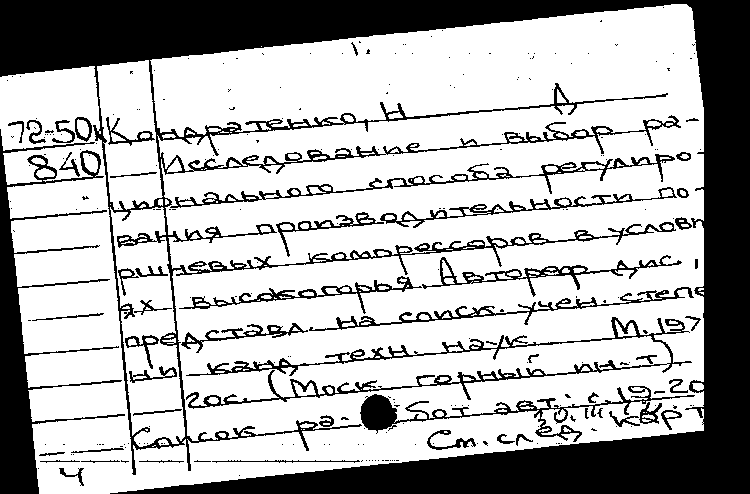 1.
72-50к Кондратенко, Н Д
840 Исследование и выбор ра-
ционального способа регулиро-
вания производительности по-
ршневых компрессоров в услови
ях высокогорья. Автореф дис.,
представл. на соиск. учен. степе
ни канд техн. наук. М, 197
20с. (Моск горный ин-т).
Список ра- бот авт.: с. 19-20
См. след. карт
Ч